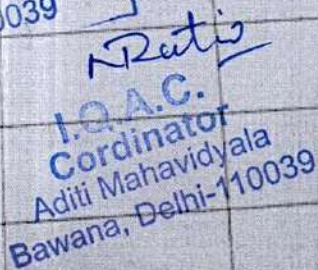 0039
I.Q.A.C.
Cordinator
Aditi Mahavidyala
Bawana, Delhi-110039